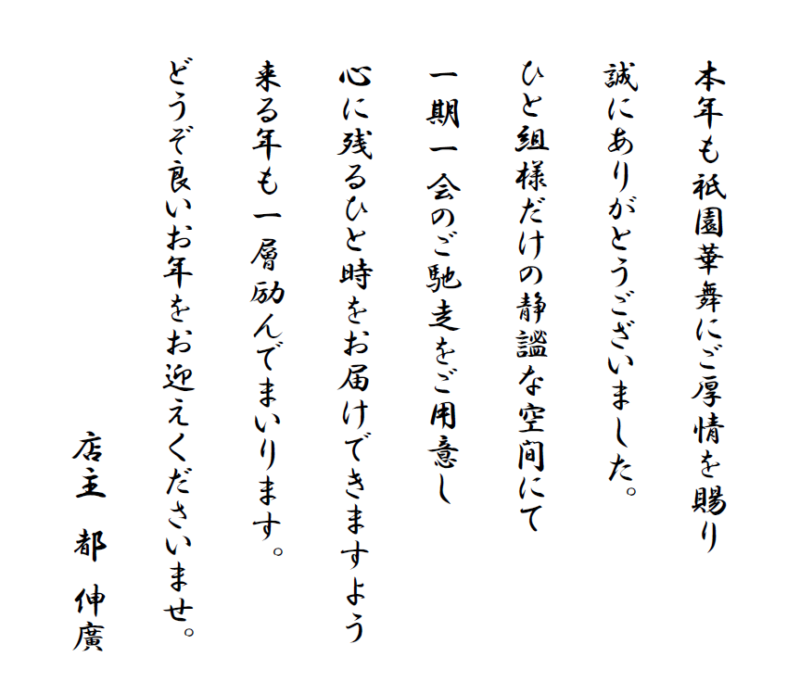 本年も祇園華舞にご厚情を賜り
誠にありがとうございました。
ひと組様だけの静謐な空间にて
一期一会のご馳走をご用意し
心に残るひと時をお届けできますよう
来る年も一層励んでまいります。
どうぞ良いお年をお迎えくださいませ。
店主 都 伸廣